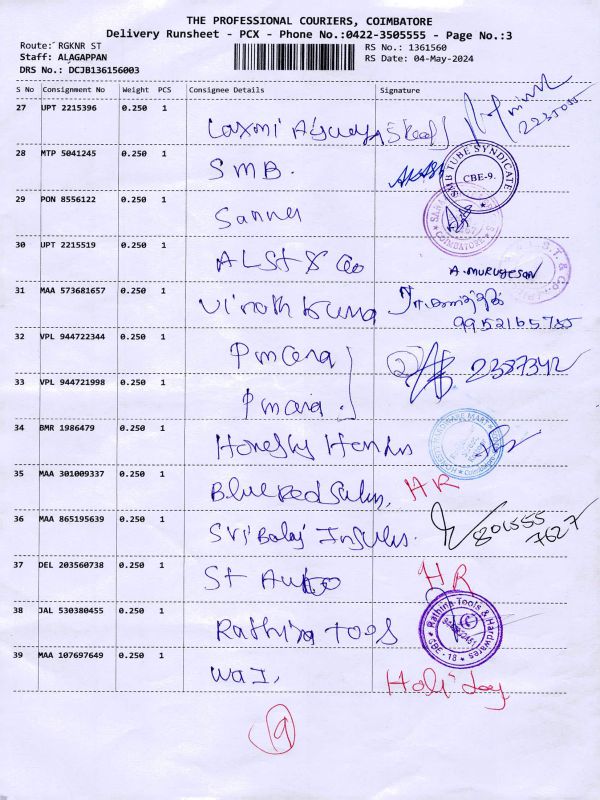 THE PROFESSIONAL COURIERS, COIMBATORE
Delivery Runsheet - PCX - Phone No.:0422-3505555 - Page No.:3
Route: RGKNR ST
Staff: ALAGAPPAN
DRS No.: DCJB136156003
RS No.: 1361560
RS Date: 04-May-2024
S No Consignment No Weight PCS Consignee Details Signature
27 UPT 2215396 0.250 1 Laxmi
28 MTP 5041245 0.250 1 SMB. SMB TUBE SYNDICATE CBE-9.
29 PON 8556122 0.250 1 COIMBATORE
30 UPT 2215519 0.250 1 ALSt & Co A. MURUGESAN
31 MAA 573681657 0.250 1 Vinoth Kumar
32 VPL 944722344 0.250 1 2387342
33 VPL 944721998 0.250 1
34 BMR 1986479 0.250 1 HARDWARE MART
35 MAA 301009337 0.250 1 HR
36 MAA 865195639 0.250 1 Sri Balaj
37 DEL 203560738 0.250 1 St Auto HR
38 JAL 530380455 0.250 1 Rathina Tools Rathina Tools & Hardwares CBE - 18
39 MAA 107697649 0.250 1 Holiday